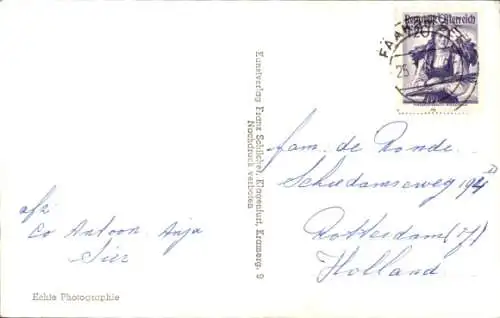 Republik Österreich
FAAK
25
Kunstverlag Franz Schilcher, Klagenfurt, Kramerg. 9
Nachdruck verboten
fam. de Ronde
Schiedamseweg 194
Rotterdam
Holland
afz
Co Antoon Anja
Sier
Echte Photographie